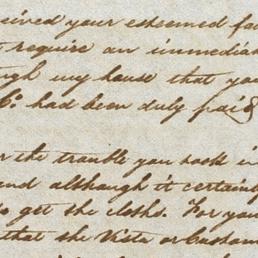 ceived your esteemed fa
t require an immedia
ough my house that you
Co. had been duly paid
or the trouble you took in
end although it certainly
to get the cloths. For you
that the Vista or Custom